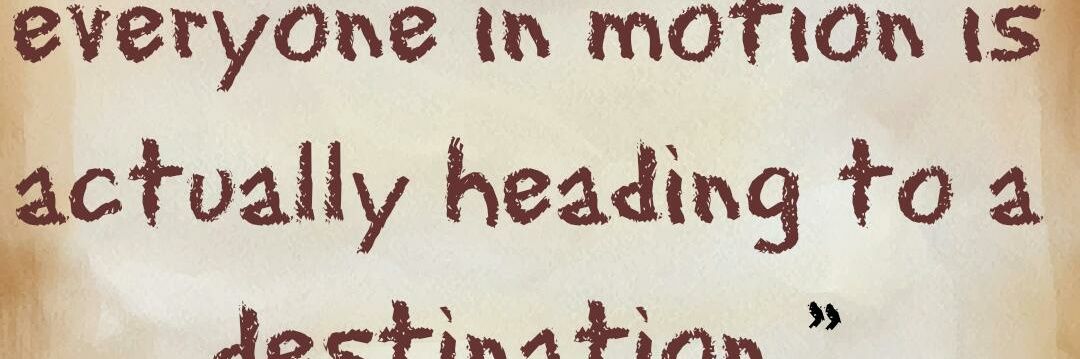 everyone in motion is
actually heading to a
destination ”